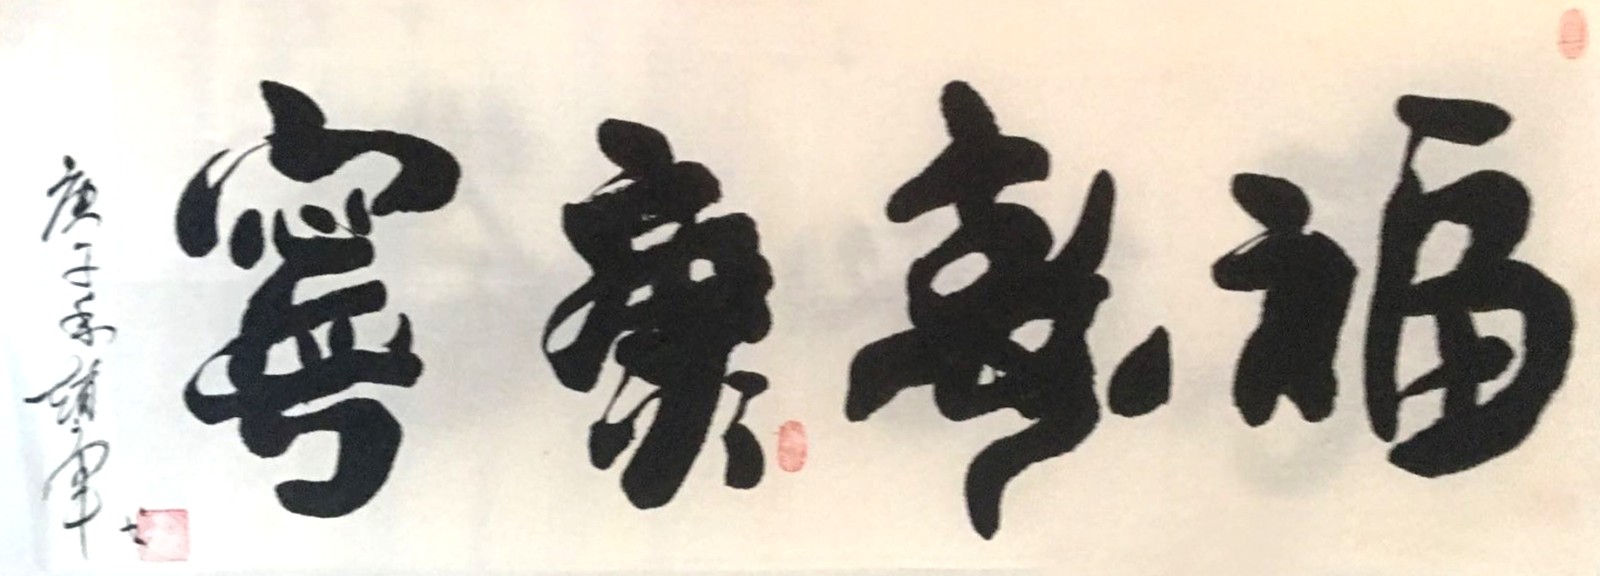 福壽康寧
庚子